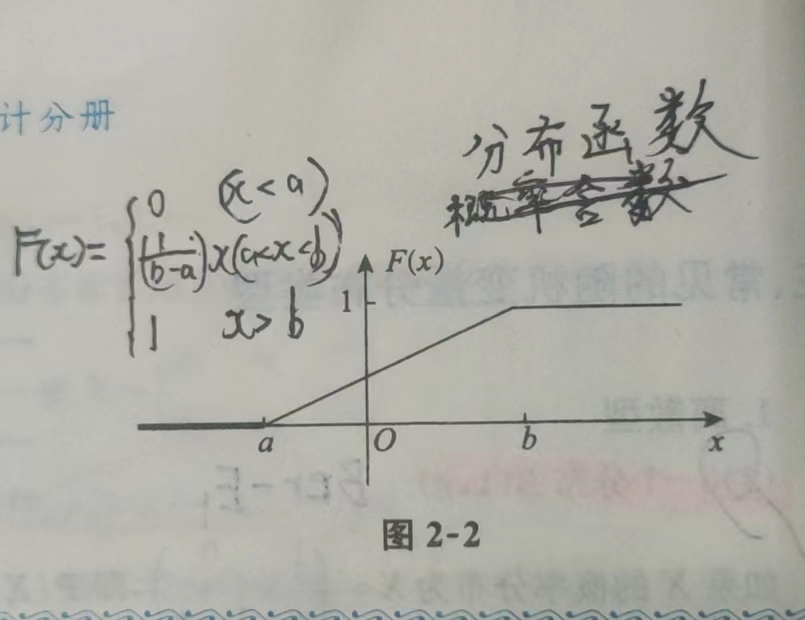 计分册
分布函数
F(x)= { 0 (x<a)
(1/(b-a))x(a<x<b)
1 x>b
F(x)
1
a O b x
图 2-2